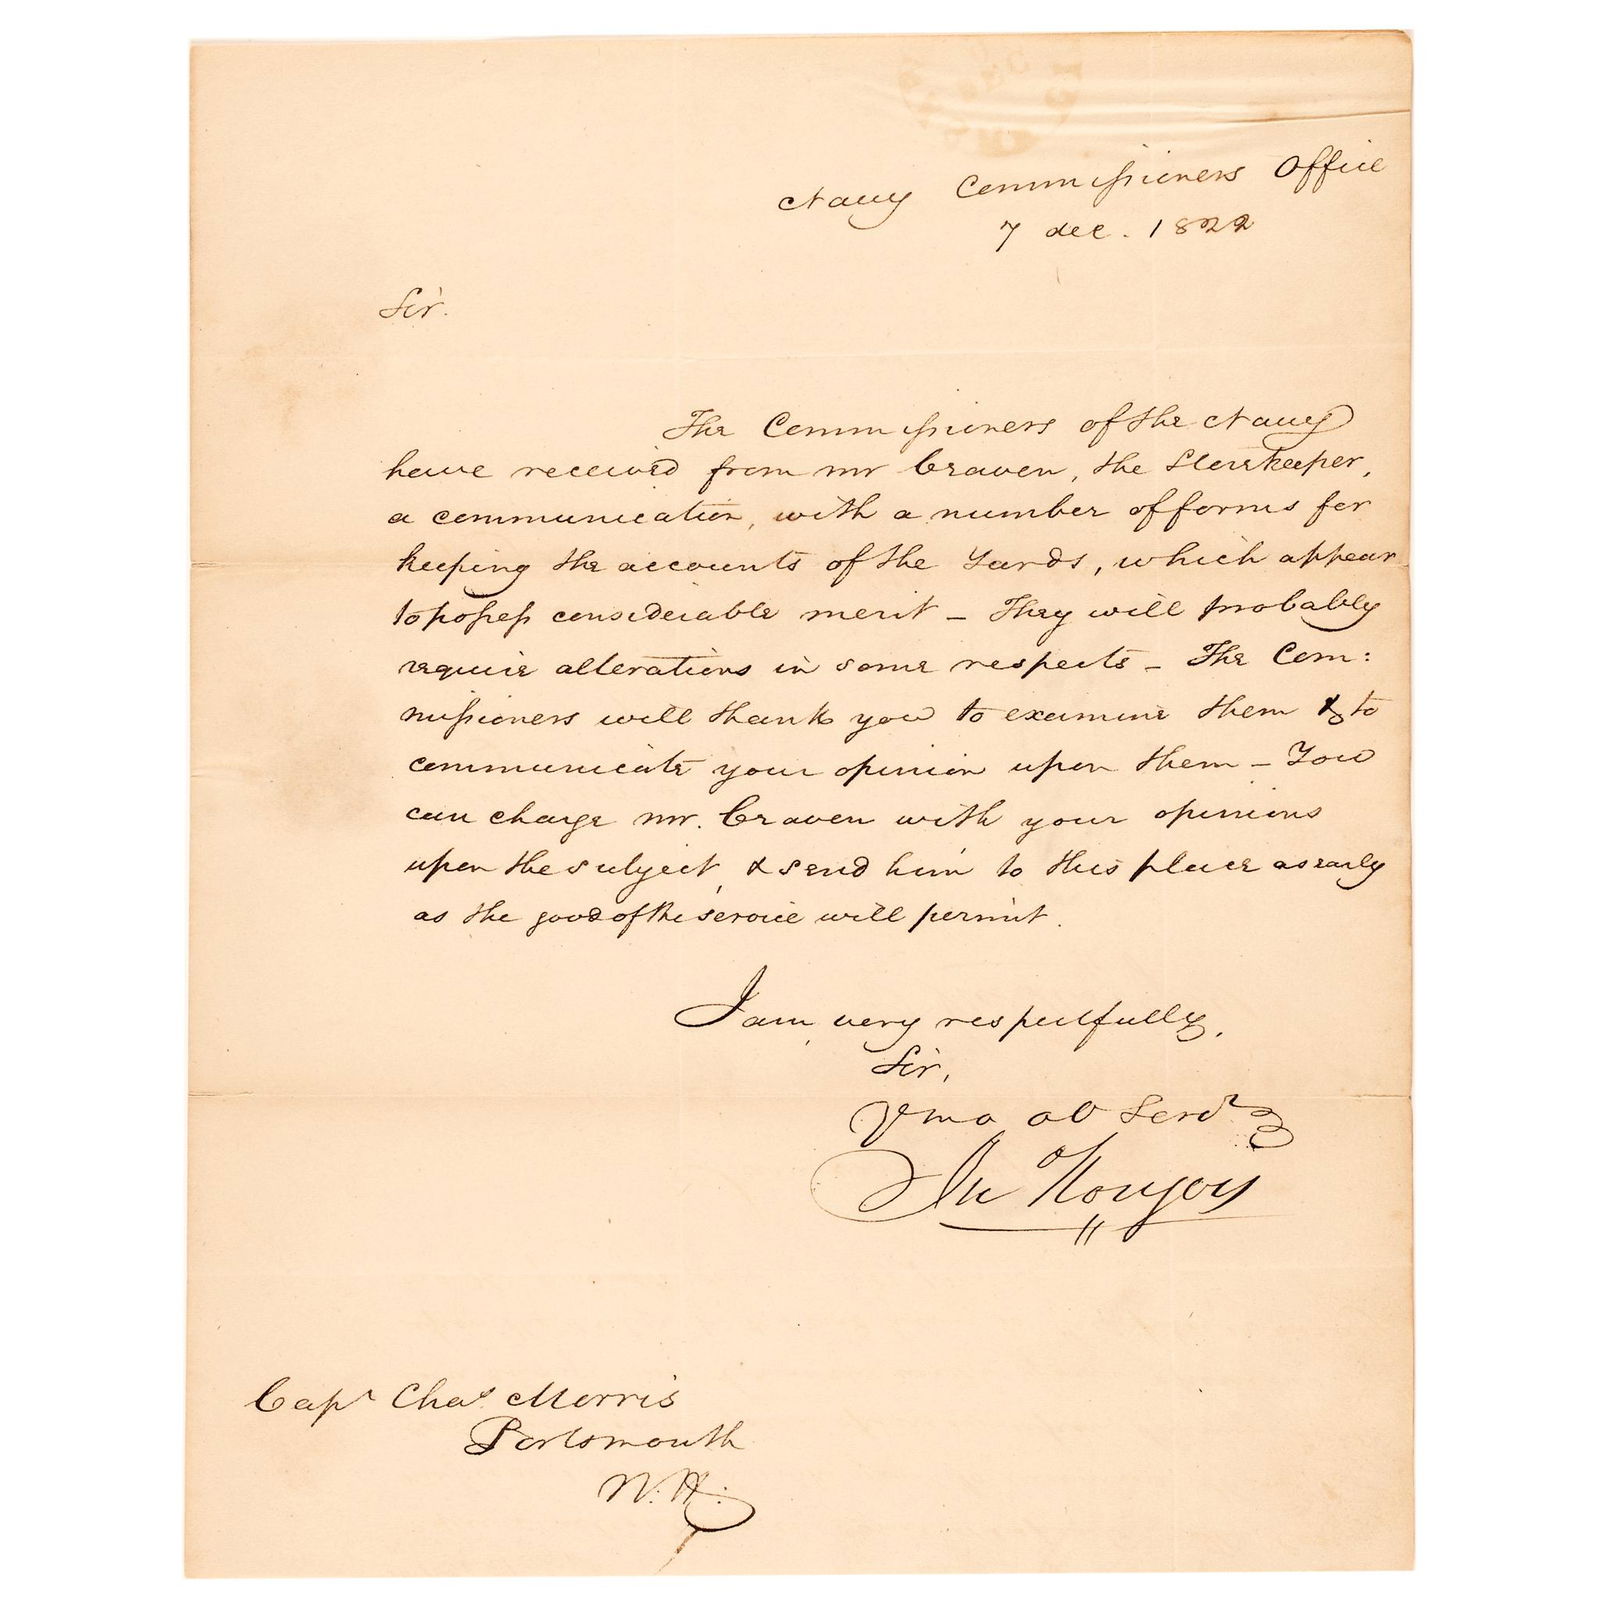 Navy Commissioners Office
7 dec. 1822
Sir.
The Commissioners of the Navy
have received from mr Craven, the Storekeeper,
a communication, with a number of forms for
keeping the accounts of the Yards, which appear
to possess considerable merit – They will probably
require alterations in some respects – The Com:
missioners will thank you to examine them & to
communicate your opinion upon them – You
can charge mr. Craven with your opinions
upon the subject, & send him to this place as early
as the good of the service will permit.
I am, very respectfully,
Sir,
ob Servt
Jn Rodgers
Capt Chas Morris
Portsmouth
N. H.